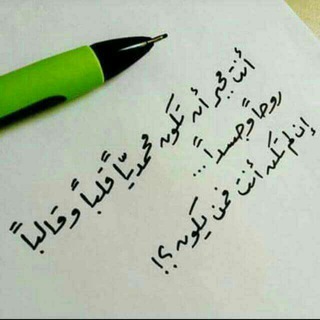 أنت مجبر أن تكون محمديًّا قلبًا وقالبًا
روحًا وجسدًا...
إن لم تكن أنت فمن يكون؟!